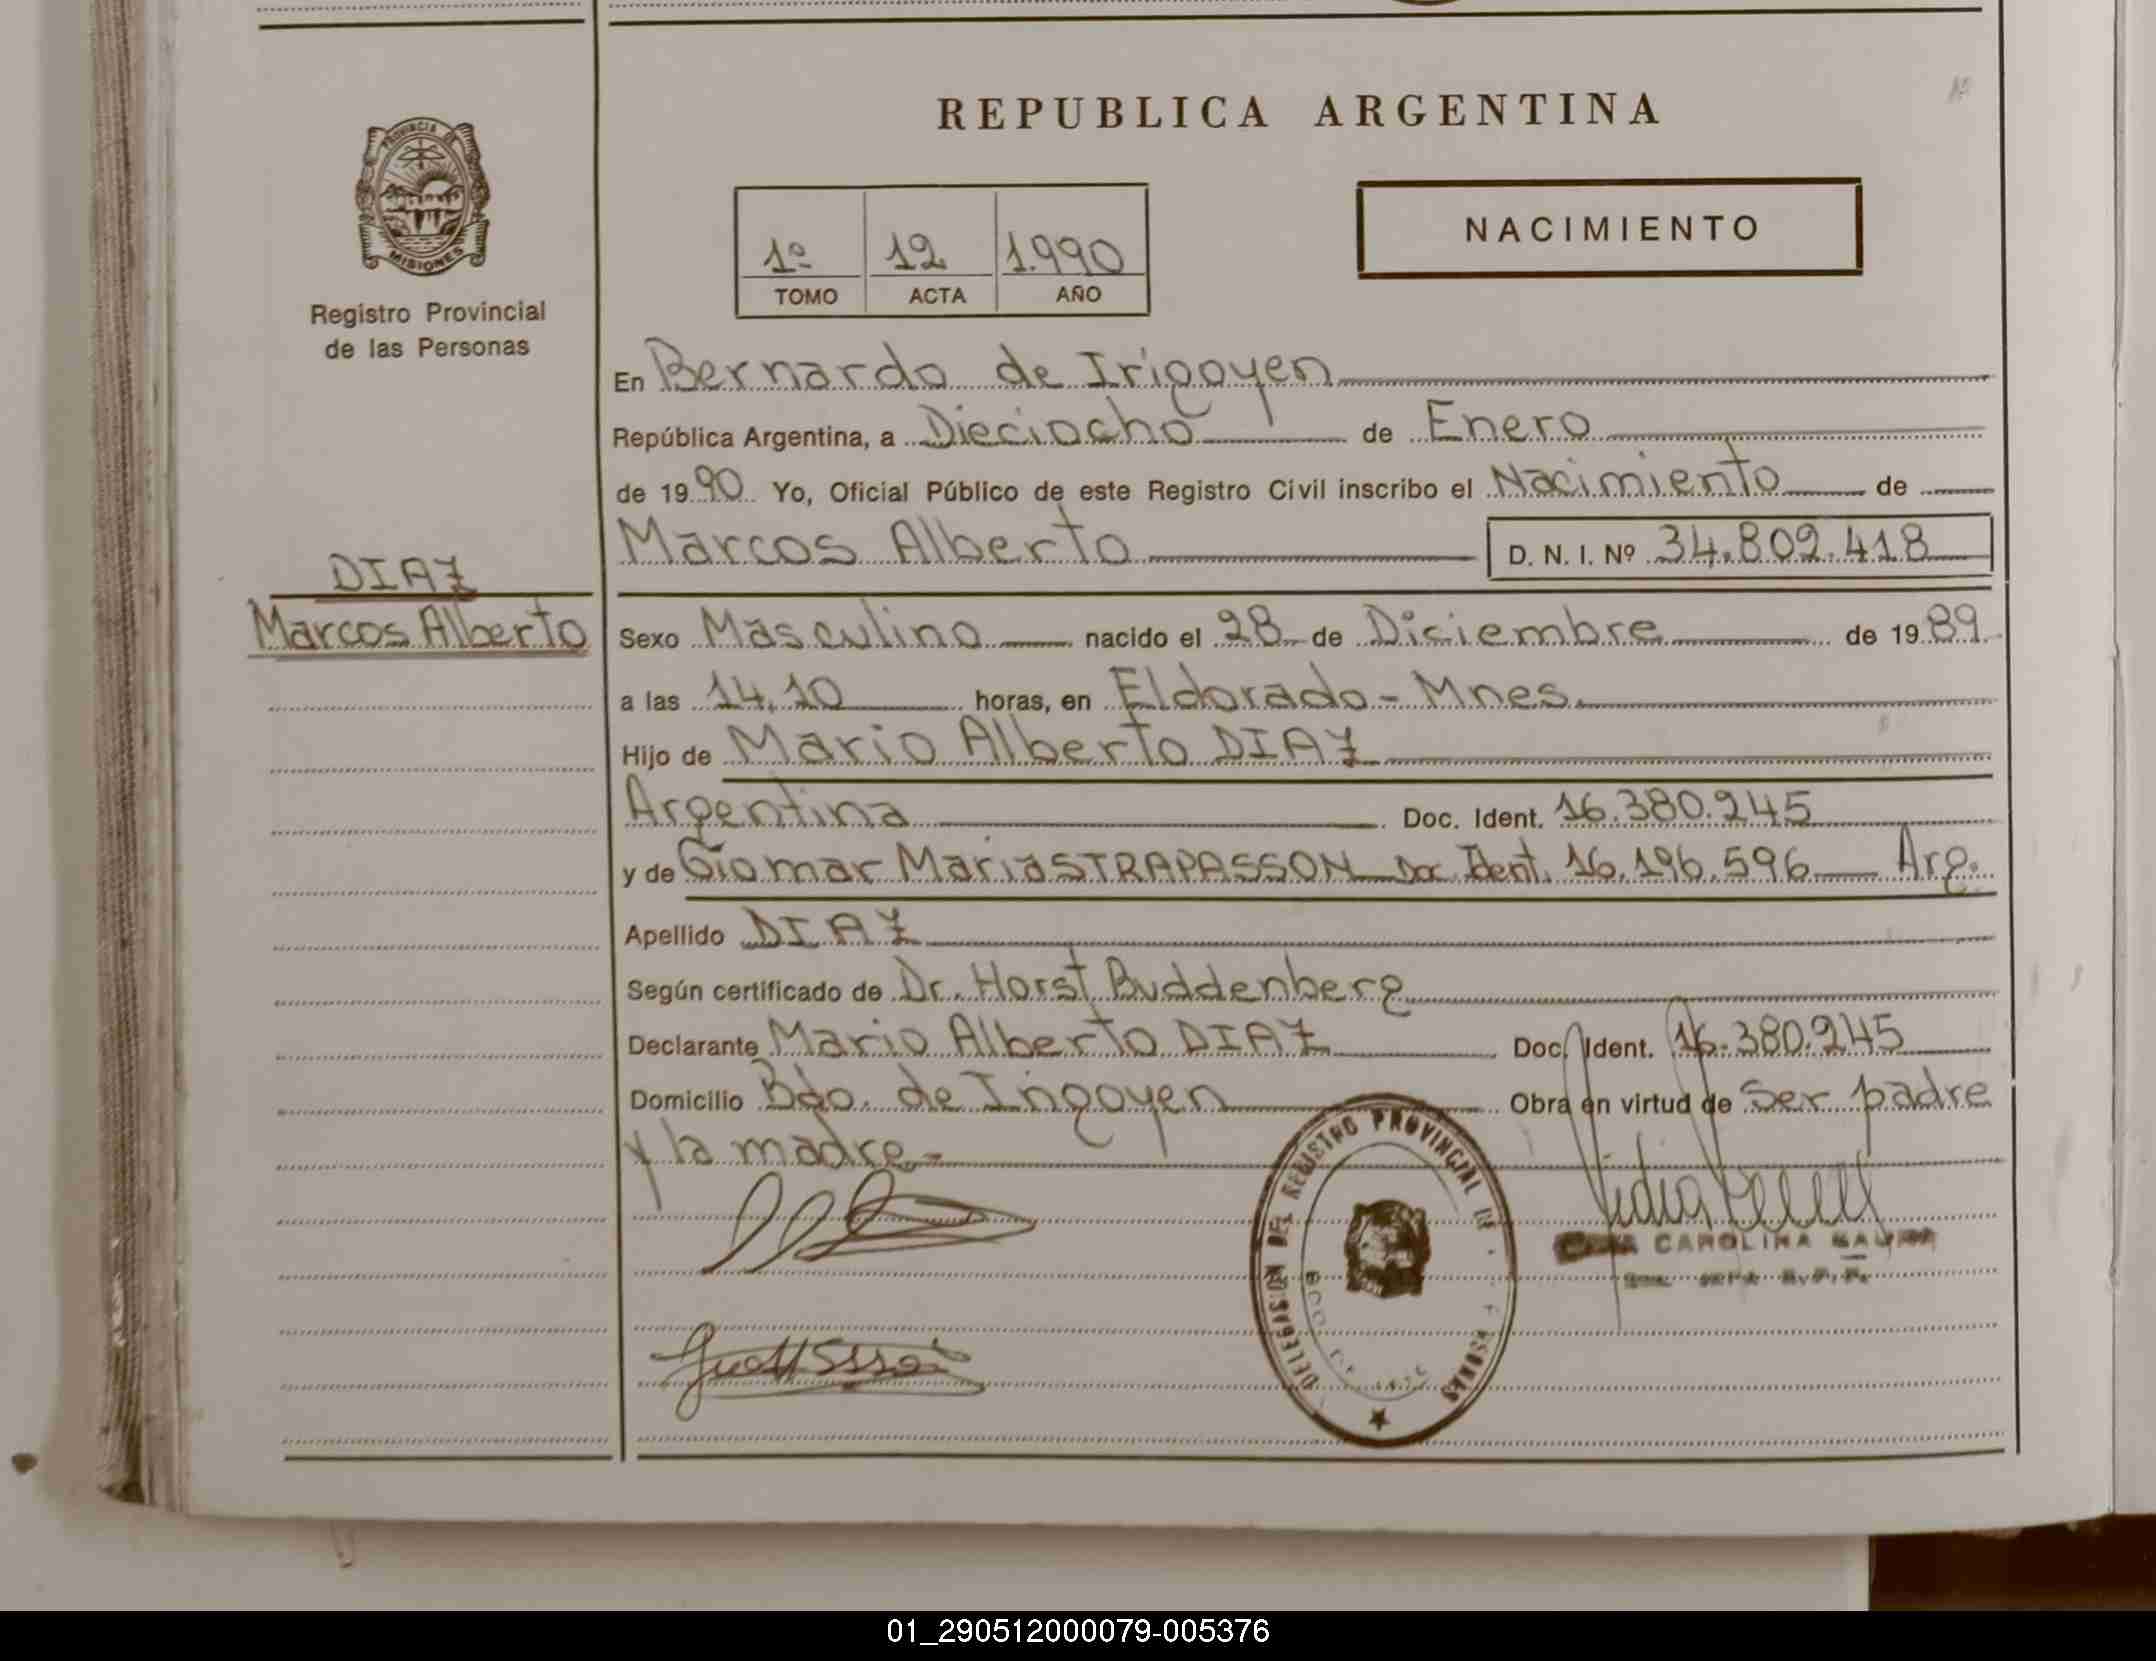 REPUBLICA ARGENTINA
PROVINCIA DE
MISIONES
Registro Provincial
de las Personas
1º 12 1.990
TOMO ACTA AÑO
NACIMIENTO
En Bernardo de Irigoyen
República Argentina, a Dieciocho de Enero
de 1990 Yo, Oficial Público de este Registro Civil inscribo el Nacimiento de
Marcos Alberto D. N. I. Nº 34.802.418
DIAZ
Marcos Alberto
Sexo Masculino nacido el 28 de Diciembre de 1989
a las 14,10 horas, en Eldorado - Mnes.
Hijo de Mario Alberto DIAZ
Argentina Doc. Ident. 16.380.245
y de Giomar Maria STRAPASSON Doc Ident. 16.196.596 Arg.
Apellido DIAZ
Según certificado de Dr. Horst Buddenberg
Declarante Mario Alberto DIAZ Doc. Ident. 16.380.245
Domicilio Bdo. de Irigoyen Obra en virtud de Ser padre
y la madre.-
DELEGASION DEL REGISTRO PROVINCIAL DE PERSONAS
CAROLINA
01_290512000079-005376